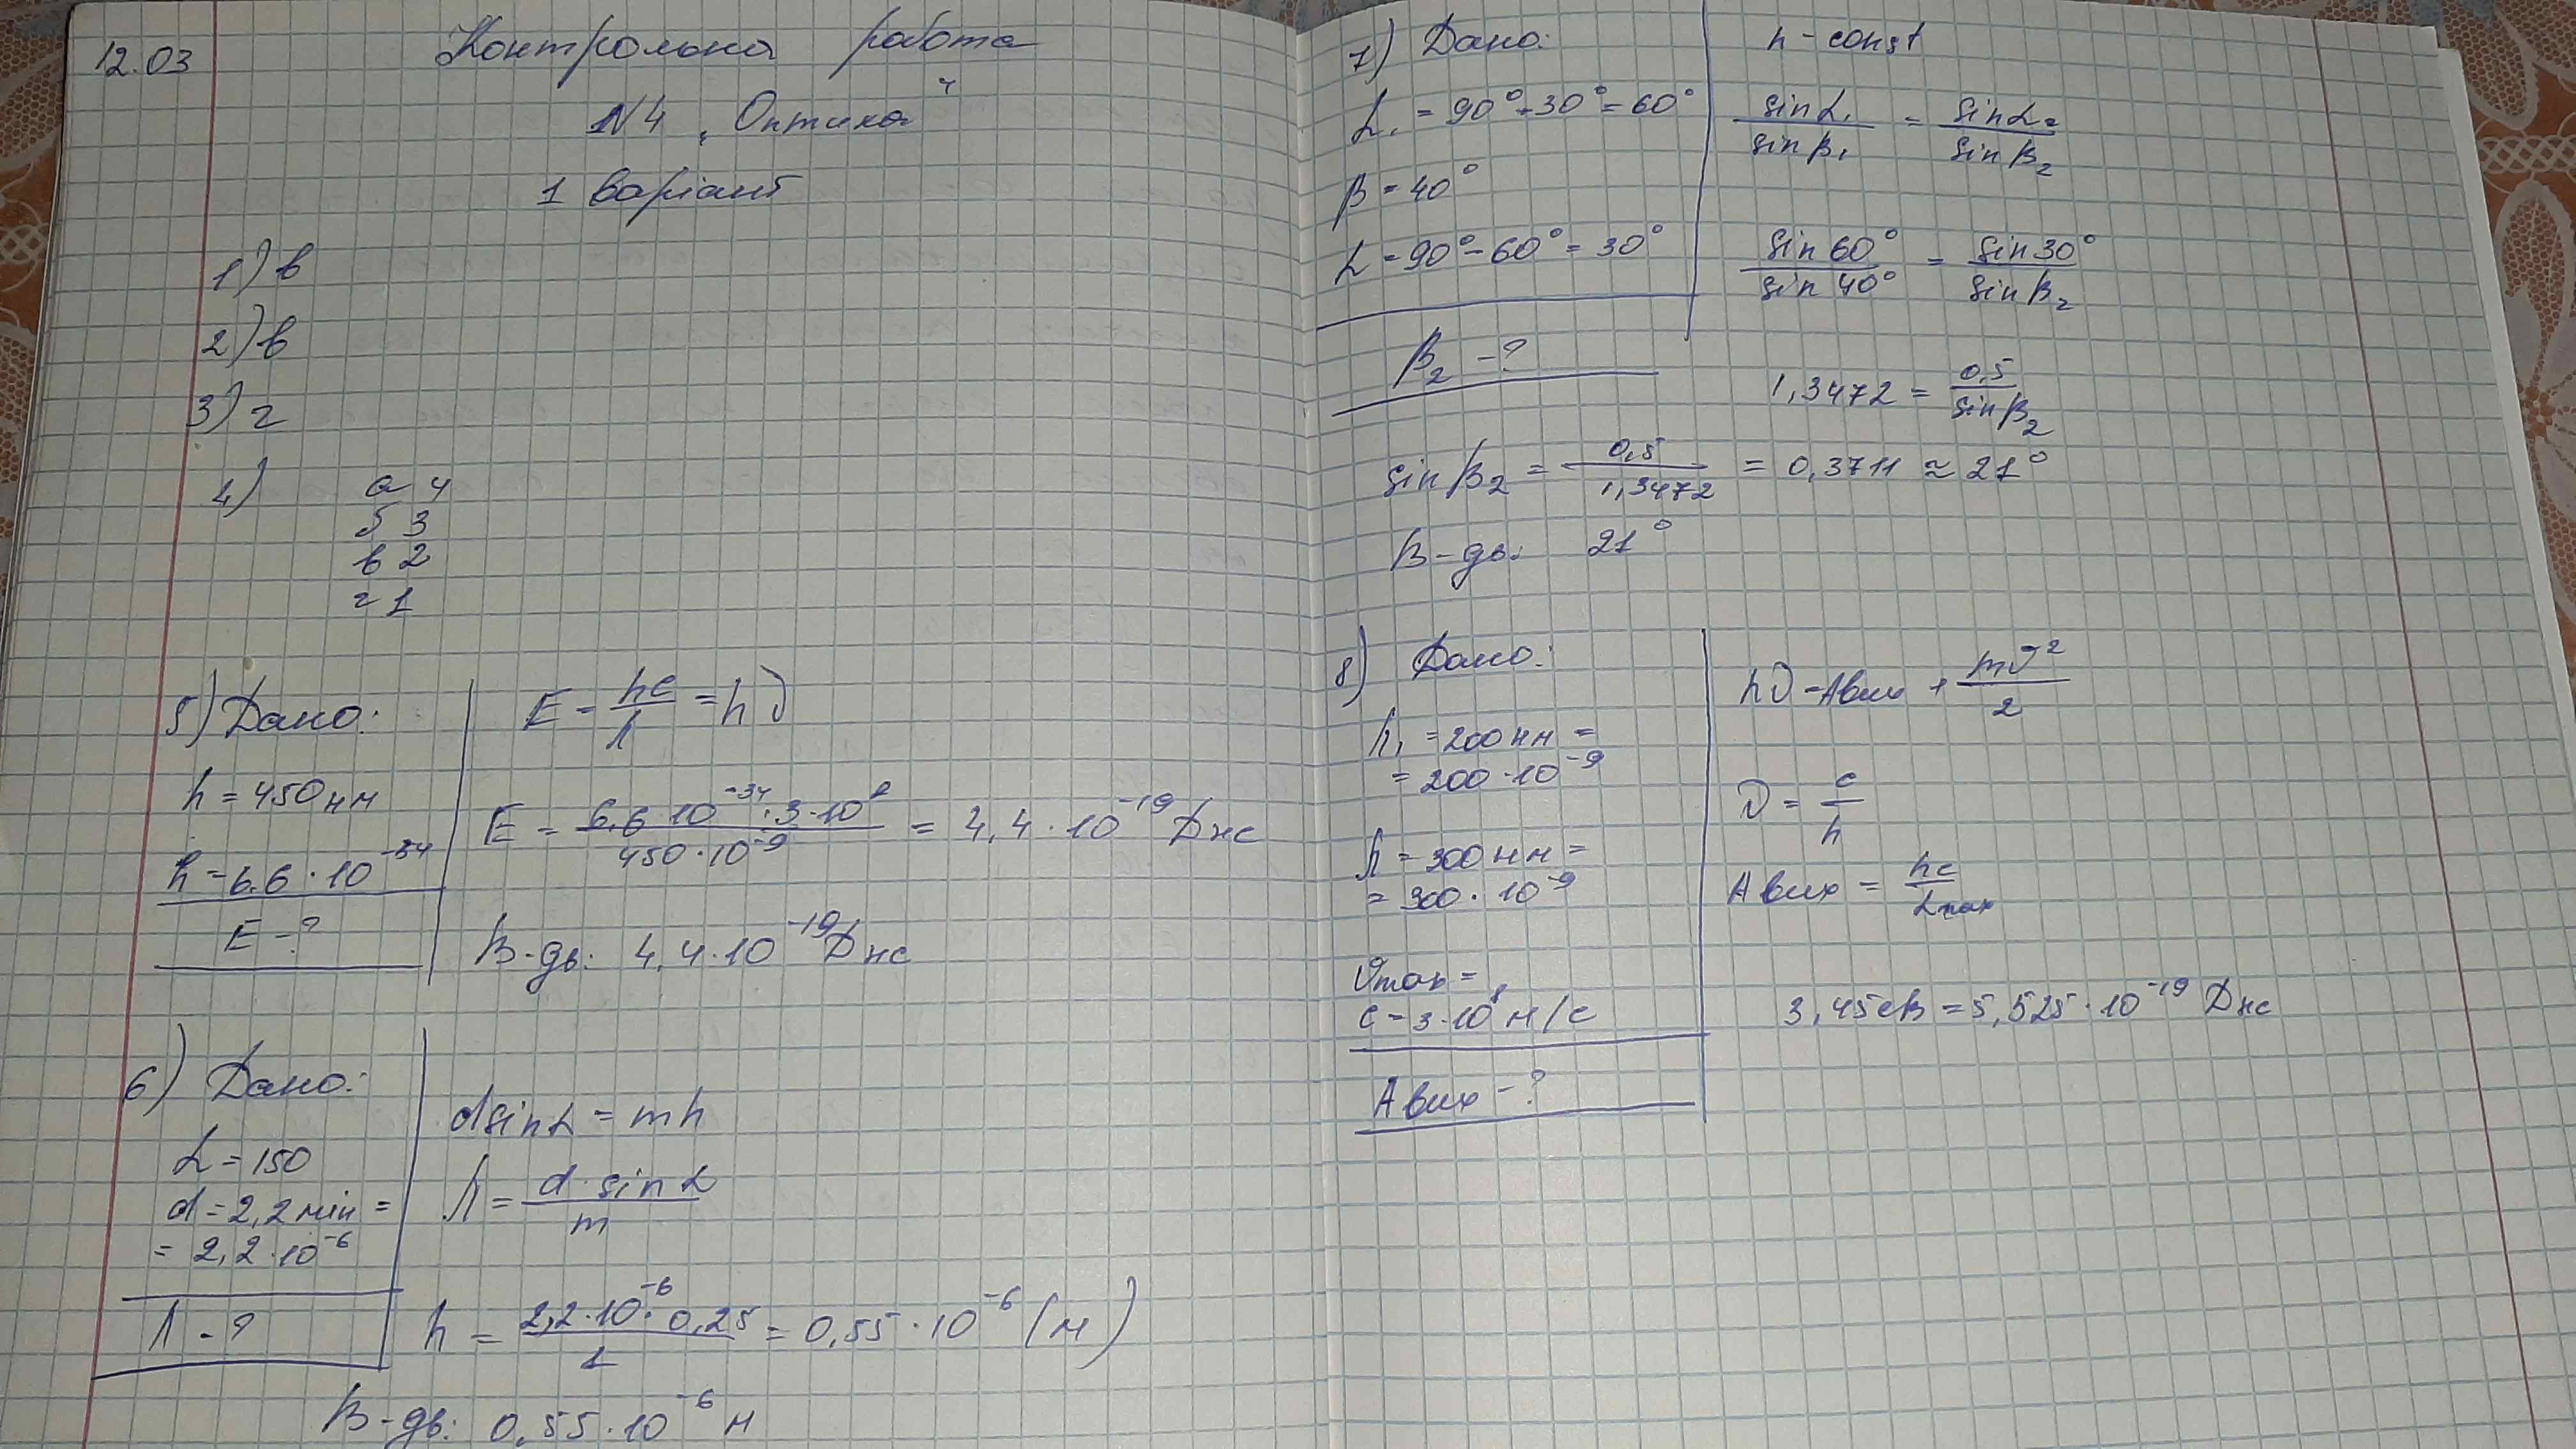 12.03
Контрольна работа
N4 „Оптика"
1 варіант
1) в
2) в
3) г
4) а 4
б 3
в 2
г 1
5) Дано:
λ = 450 нм
h = 6.6 · 10⁻³⁴
E - ?
E = hc/λ = hν
E = 6.6 · 10⁻³⁴ · 3 · 10⁸ / 450 · 10⁻⁹ = 4,4 · 10⁻¹⁹ Дж
В-дь: 4,4 · 10⁻¹⁹ Дж
6) Дано:
α = 150
d = 2,2 мін =
= 2,2 · 10⁻⁶
λ - ?
d sin α = mλ
λ = d · sin α / m
λ = 2,2 · 10⁻⁶ · 0,25 / 1 = 0,55 · 10⁻⁶ (м)
В-дь: 0,55 · 10⁻⁶ м
7) Дано:
α₁ = 90° - 30° = 60°
β = 40°
α = 90° - 60° = 30°
β₂ - ?
n - const
sin α₁ / sin β₁ = sin α₂ / sin β₂
sin 60° / sin 40° = sin 30° / sin β₂
1,3472 = 0,5 / sin β₂
sin β₂ = 0,5 / 1,3472 = 0,3711 ≈ 21°
В-дь: 21°
8) Дано:
λ₁ = 200 нм =
= 200 · 10⁻⁹
λ = 300 нм =
= 300 · 10⁻⁹
υmax =
c = 3 · 10⁸ м/с
Aвих - ?
hν = Aвих + mυ² / 2
ν = c / λ
Aвих = hc / λmax
3,45 еВ = 5,525 · 10⁻¹⁹ Дж